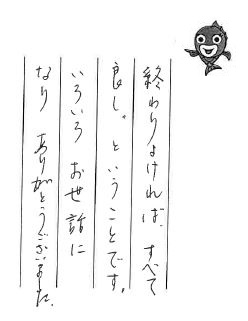 終わりよければ、すべて
良し。ということです。
いろいろ お世話に
なり ありがとうございました。